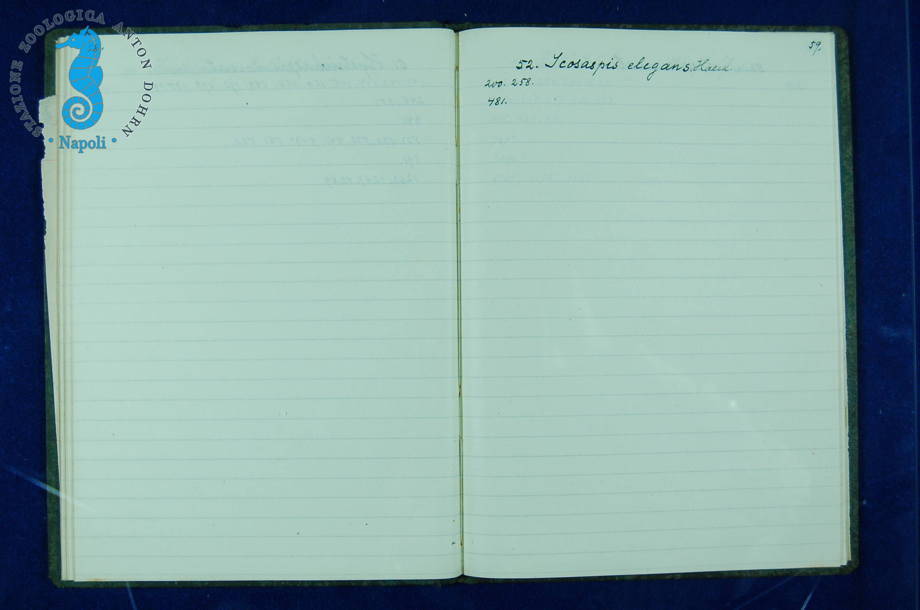 STAZIONE ZOOLOGICA ANTON DOHRN
• Napoli •
59.
52. Icosaspis elegans Haeck.
200. 258.
481.